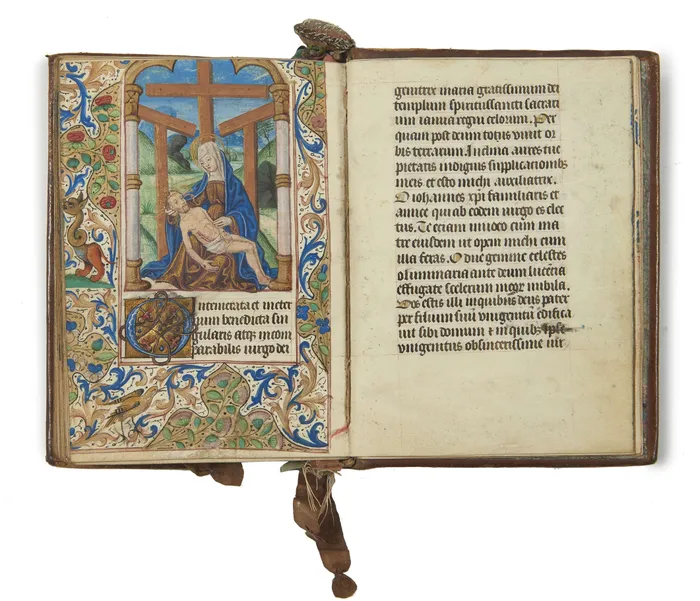 O
intemerata et inter
num benedicta sin
gularis atq; incom
parabilis virgo dei
genitrix maria gratissimum dei
templum spiritussancti sacrari
um ianua regni celorum. Per
quam post deum totus vivit or
bis terrarum. Inclina aures tue
pietatis indignis supplicationib;
meis et esto michi auxiliatrix.
O iohannes xpi familiaris et
amice qui ab eodem virgo es elec
tus. Te etiam invoco cum ma
tre eiusdem ut opem michi cum
illa feras. O due gemme celestes
o luminaria ante deum lucēcia
effugate scelerum meor nubila.
Vos estis illi in quibus deus pater
per filium suū unigenitū edifica
vit sibi domum et in quib; ipse
unigenitus ob sincerissime vir